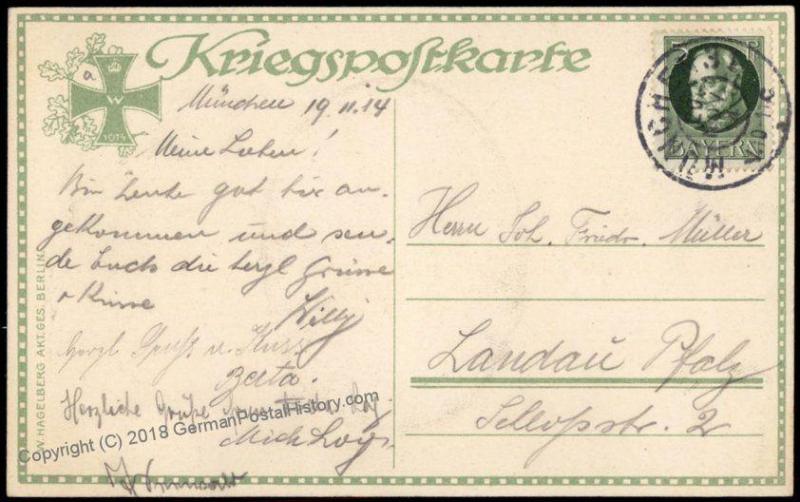 Kriegspostkarte
W
1914
5 PF
BAYERN
MÜNCHEN
München 19.11.14
Meine Lieben!
Bin heute gut hier an-
gekommen und sen-
de Euch die herzl Grüsse
u Küsse
Willy
Herzl Gruß u. Kuss
Berta.
Herzliche Grüße
Herrn Joh. Friedr. Müller
Landau Pfalz
Schlossstr. 2
W. HAGELBERG AKT. GES. BERLIN
Copyright (C) 2018 GermanPostalHistory.com